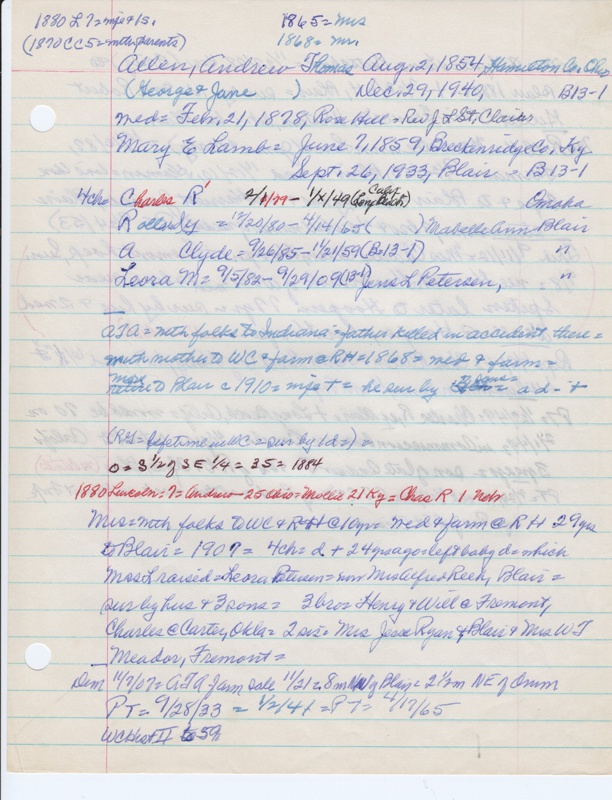 1880 L 7 = mje + 1s. 1865 = Mrs
(1870 CC5 = mth. parents) 1868 = Mr.
Allen, Andrew Thomas Aug. 2, 1854, Hamilton Co. Ohio
(George & Jane ) Dec. 29, 1940, B13-1
med = Febr. 21, 1878, Rose Hill = Rev J L St. Clair
Mary E Lamb = June 7, 1859, Breckenridge Co. Ky
Sept. 26, 1933, Blair = B13-1
4ch = Charles R 2/1/79 - 1/x/49 (Calif Long Beach) Omaha
Rolland y = 12/20/80 - 4/14/65 ( ) Mabelle Ann Blair
A Clyde = 9/26/85 - 1/21/59 (B13-1) "
Leora M = 9/5/82 - 9/29/09 (B-1) Jens L Petersen, "
ATA = mth folks to Indiana = father killed in accident there =
mth mother to WC & farm @ RH = 1868 = med & farm =
retire to Blair c 1910 = mje + = he sur by 3 sons = a d - +
(RG = lifetime in WC = sur by 1d =) =
O = S 1/2 of SE 1/4 = 35 = 1884
1880 Lincoln = 7 = Andrew - 25 Ohio = Mollie 21 Ky = Chas R 1 Nebr
Mrs = mth folks to WC & RH c 10yr = med & farm @ RH 29yrs
to Blair = 1907 = 4ch = d + 24 yrs ago = left baby d = which
Mrs L raised = Leora Petersen = now Mrs Alfred Reeh, Blair =
sur by hus & 3 sons = 3 bro = Henry & Will @ Fremont,
Charles @ Carter, Okla = 2 sis = Mrs Jesse Ryan & Blair & Mrs W T
Meador, Fremont =
Dem 11/7/07 = ATA farm sale 11/21 = 8m NW of Blair = 2 1/2 m NE of Orum
PT = 9/28/33 = 1/2/41 = PT = 4/17/65
WC Hist II 59